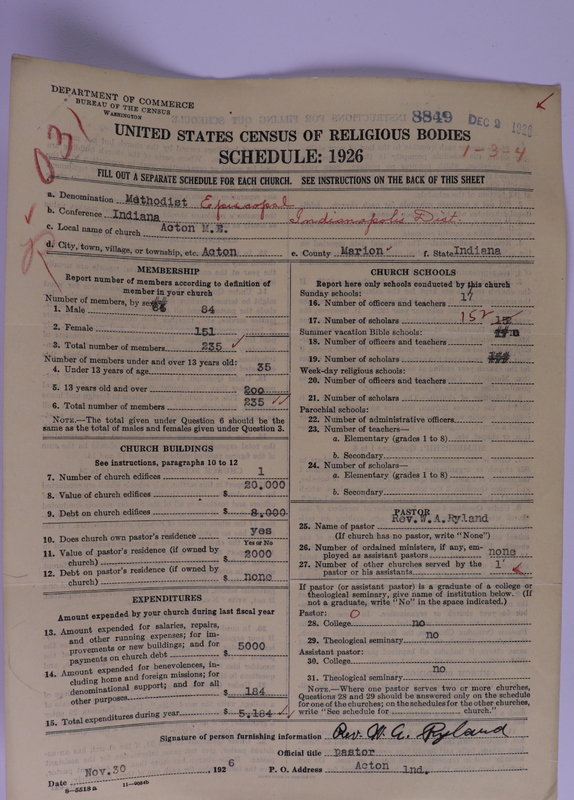 DEPARTMENT OF COMMERCE
BUREAU OF THE CENSUS
WASHINGTON
8849 DEC 2 1926
UNITED STATES CENSUS OF RELIGIOUS BODIES
SCHEDULE: 1926
1-3-4
FILL OUT A SEPARATE SCHEDULE FOR EACH CHURCH. SEE INSTRUCTIONS ON THE BACK OF THIS SHEET
a. Denomination Methodist Episcopal
b. Conference Indiana Indianapolis Dist.
c. Local name of church Acton M.E.
d. City, town, village, or township, etc. Acton e. County Marion f. State Indiana
MEMBERSHIP
Report number of members according to definition of
member in your church
Number of members, by sex:
1. Male 84
2. Female 151
3. Total number of members 235
Number of members under and over 13 years old:
4. Under 13 years of age 35
5. 13 years old and over 200
6. Total number of members 235
NOTE.—The total given under Question 6 should be the
same as the total of males and females given under Question 3.
CHURCH BUILDINGS
See instructions, paragraphs 10 to 12
7. Number of church edifices 1
8. Value of church edifices $ 20.000
9. Debt on church edifices $ 8.000
10. Does church own pastor's residence yes
Yes or No
11. Value of pastor's residence (if owned by
church) $ 2000
12. Debt on pastor's residence (if owned by
church) $ none
EXPENDITURES
Amount expended by your church during last fiscal year
13. Amount expended for salaries, repairs,
and other running expenses; for im-
provements or new buildings; and for
payments on church debt $ 5000
14. Amount expended for benevolences, in-
cluding home and foreign missions; for
denominational support; and for all
other purposes $ 184
15. Total expenditures during year $ 5.184
CHURCH SCHOOLS
Report here only schools conducted by this church
Sunday schools:
16. Number of officers and teachers 17
17. Number of scholars 152
Summer vacation Bible schools:
18. Number of officers and teachers
19. Number of scholars
Week-day religious schools:
20. Number of officers and teachers
21. Number of scholars
Parochial schools:
22. Number of administrative officers
23. Number of teachers—
a. Elementary (grades 1 to 8)
b. Secondary
24. Number of scholars—
a. Elementary (grades 1 to 8)
b. Secondary
PASTOR
25. Name of pastor Rev.W.A.Ryland
(If church has no pastor, write "None")
26. Number of ordained ministers, if any, em-
ployed as assistant pastors none
27. Number of other churches served by the
pastor or his assistants 1
If pastor (or assistant pastor) is a graduate of a college or
theological seminary, give name of institution below. (If
not a graduate, write "No" in the space indicated.)
Pastor: 0
28. College no
29. Theological seminary no
Assistant pastor:
30. College
31. Theological seminary no
NOTE.—Where one pastor serves two or more churches,
Questions 28 and 29 should be answered only on the schedule
for one of the churches; on the schedules for the other churches,
write "See schedule for church."
Signature of person furnishing information Rev. W. A. Ryland
Official title Pastor
Date Nov.30, 1926 P. O. Address Acton Ind.
8-5518a 11-9054b